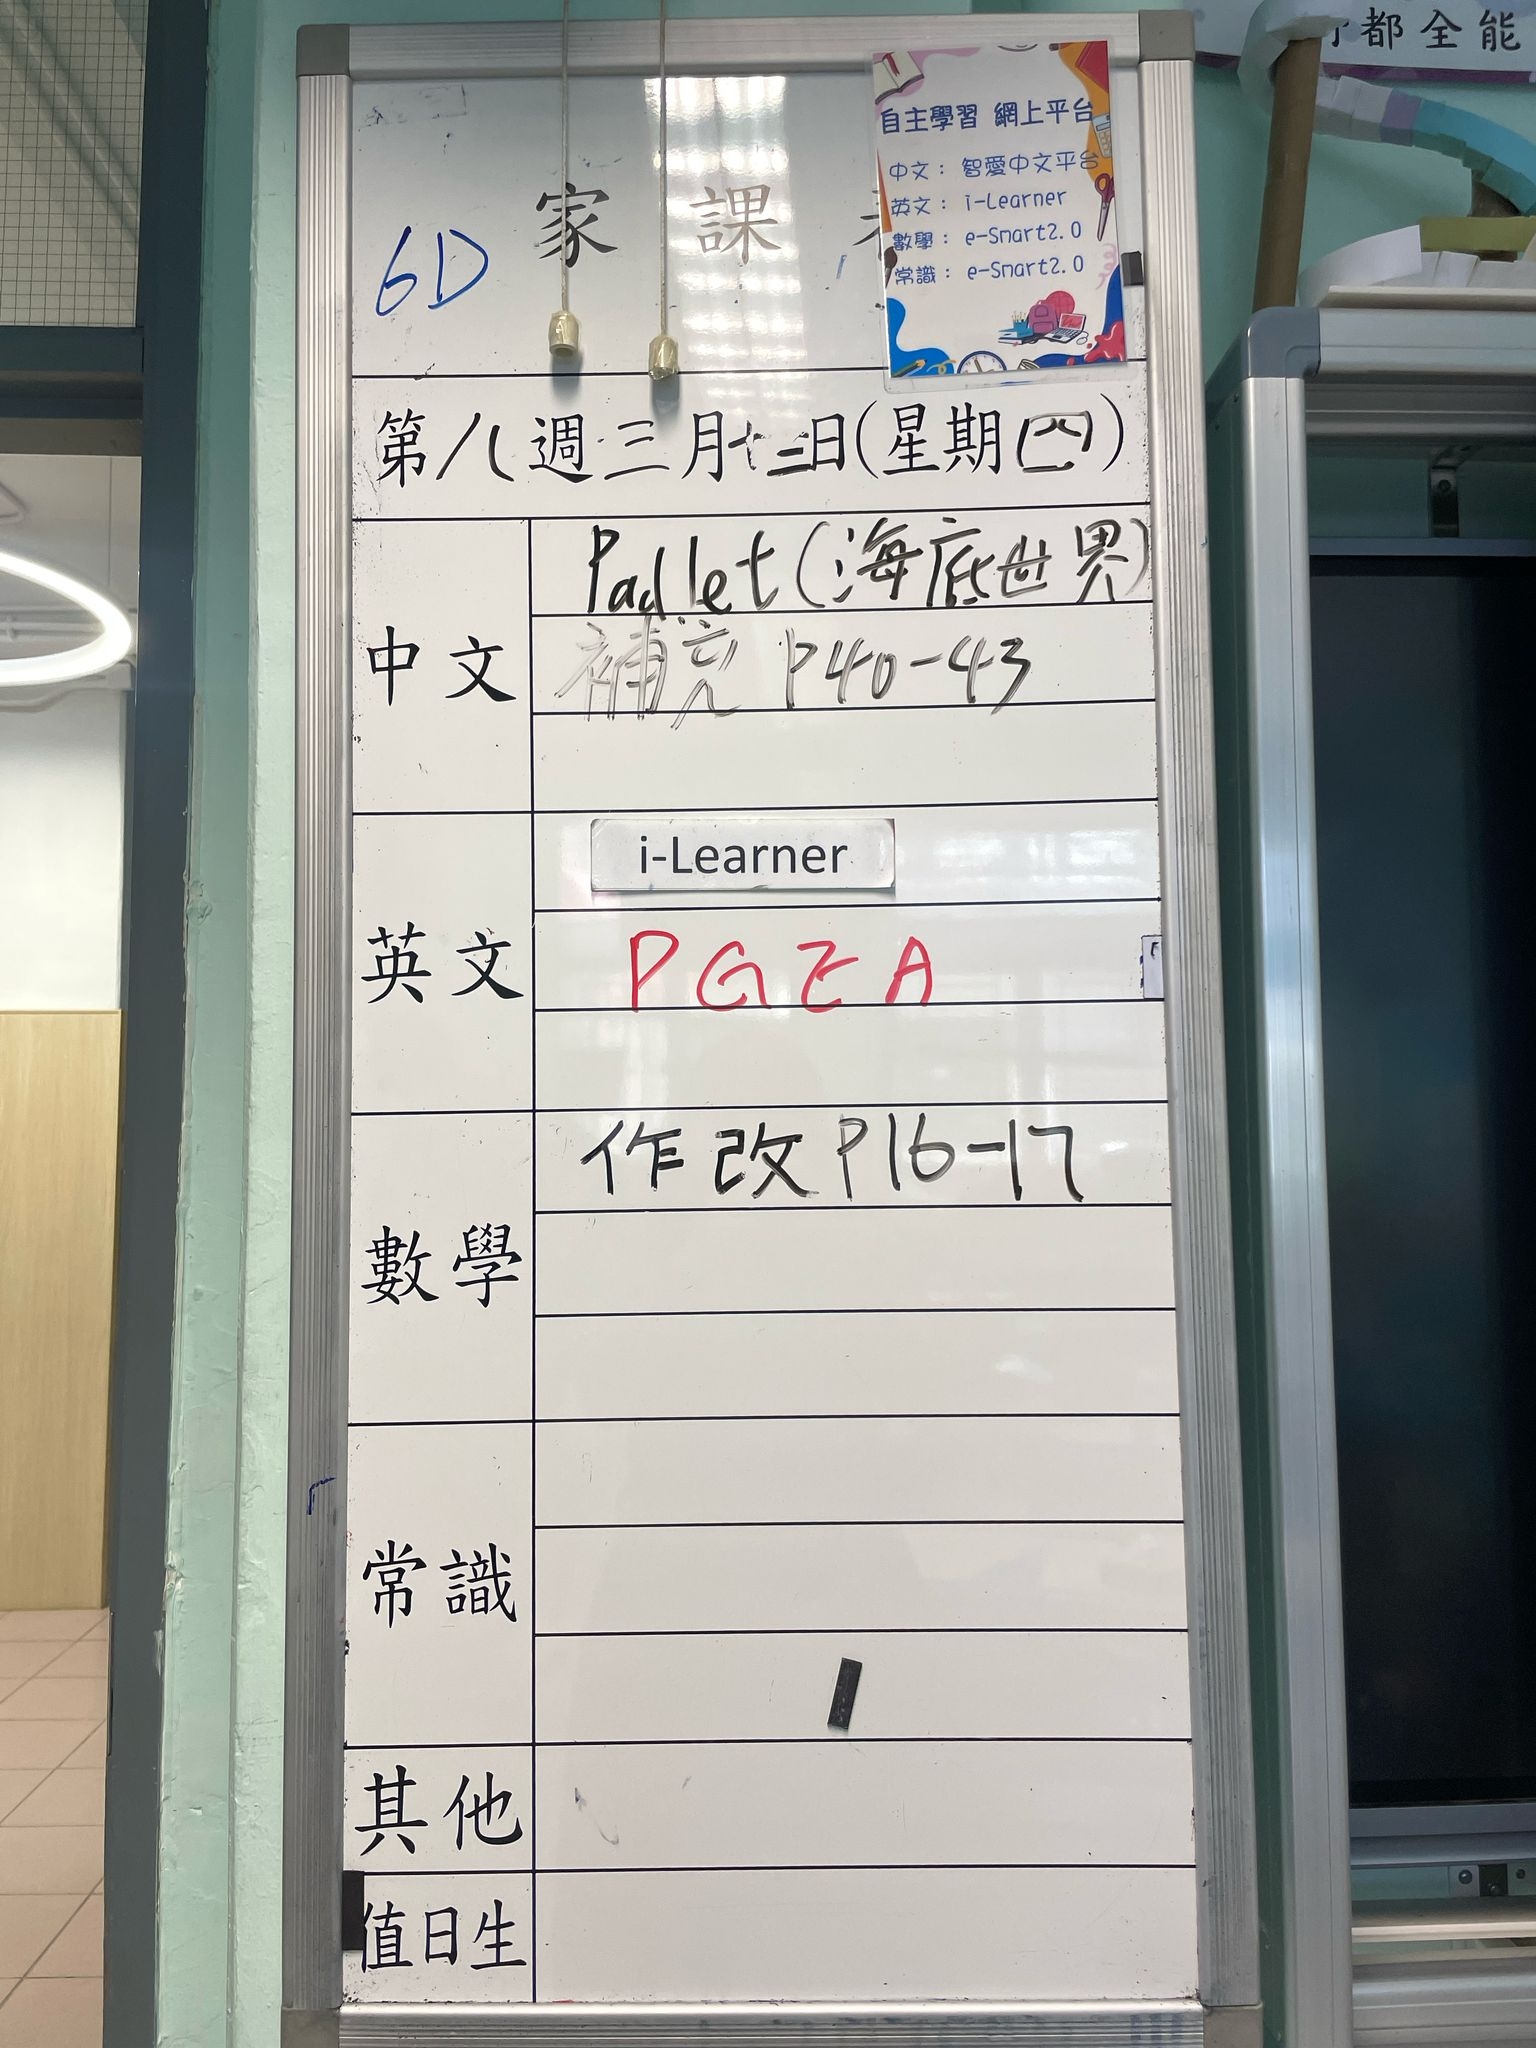 都全能
自主學習 網上平台
中文： 智愛中文平台
英文： i-Learner
數學： e-Smart2.0
常識： e-Smart2.0
6D
家課
第八週三月十三日(星期四)
中文
Padlet(海底世界)
補充 P40-43
英文
i-Learner
PGEA
數學
作改 P16-17
常識
其他
值日生